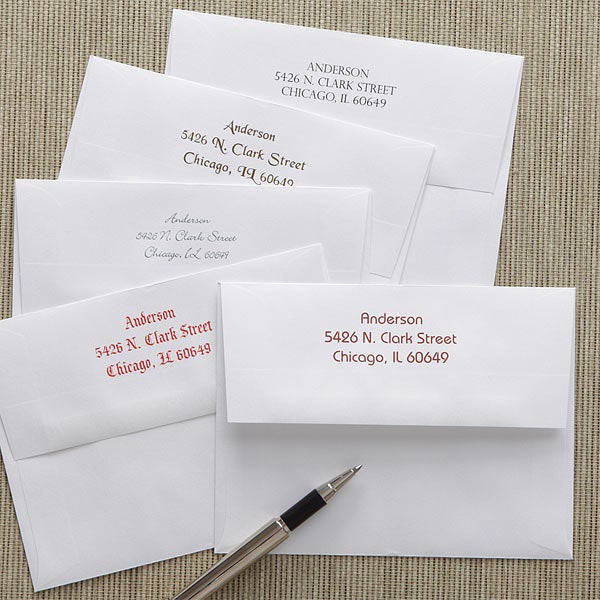 ANDERSON
5426 N. CLARK STREET
CHICAGO, IL 60649
Anderson
5426 N. Clark Street
Chicago, IL 60649
Anderson
5426 N. Clark Street
Chicago, IL 60649
Anderson
5426 N. Clark Street
Chicago, IL 60649
Anderson
5426 N. Clark Street
Chicago, IL 60649